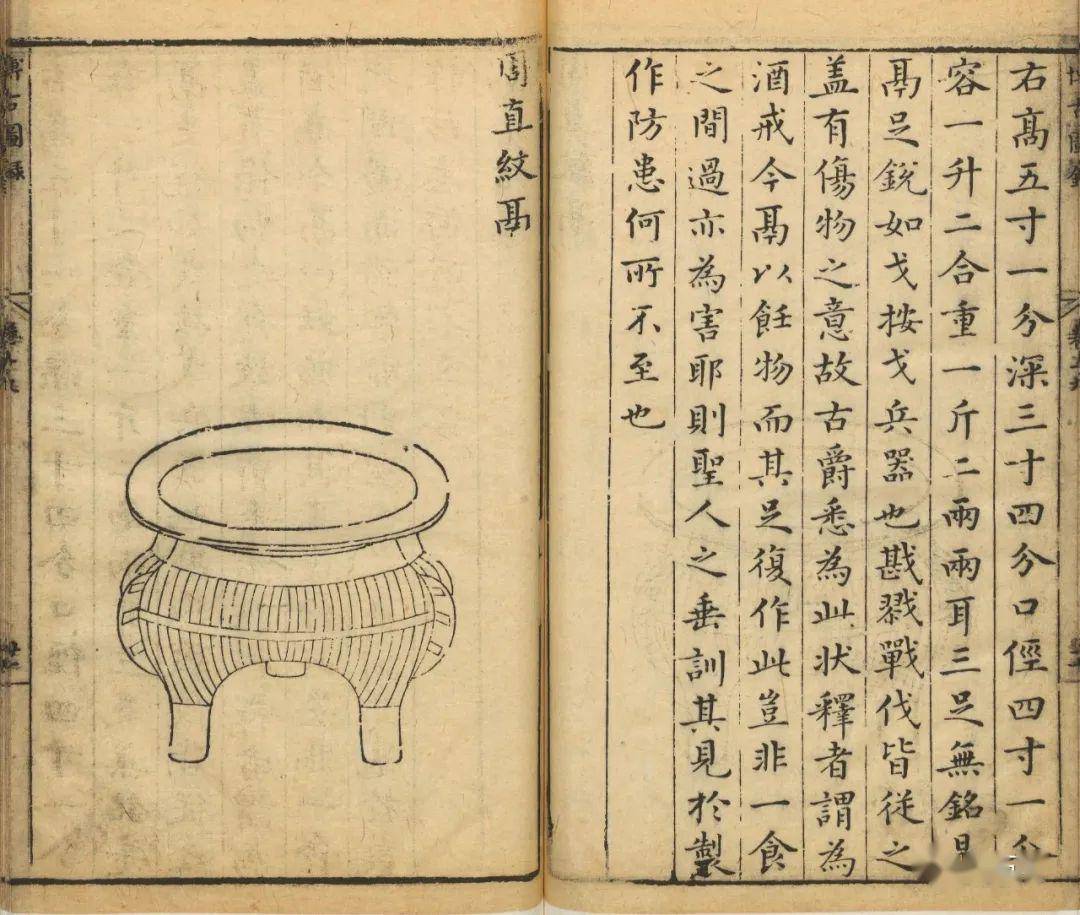 右髙五寸一分深三寸四分口俓四寸一分
容一升二合重一斤二兩兩耳三足無銘是
鬲足銳如戈按戈兵器也戡戮戰伐皆從之
盖有傷物之意故古爵悉為此状釋者謂為
酒戒今鬲以飪物而其足復作此豈非一食
之間過亦為害耶則聖人之垂訓其見於製
作防患何所不至也
周直紋鬲
博古圖録